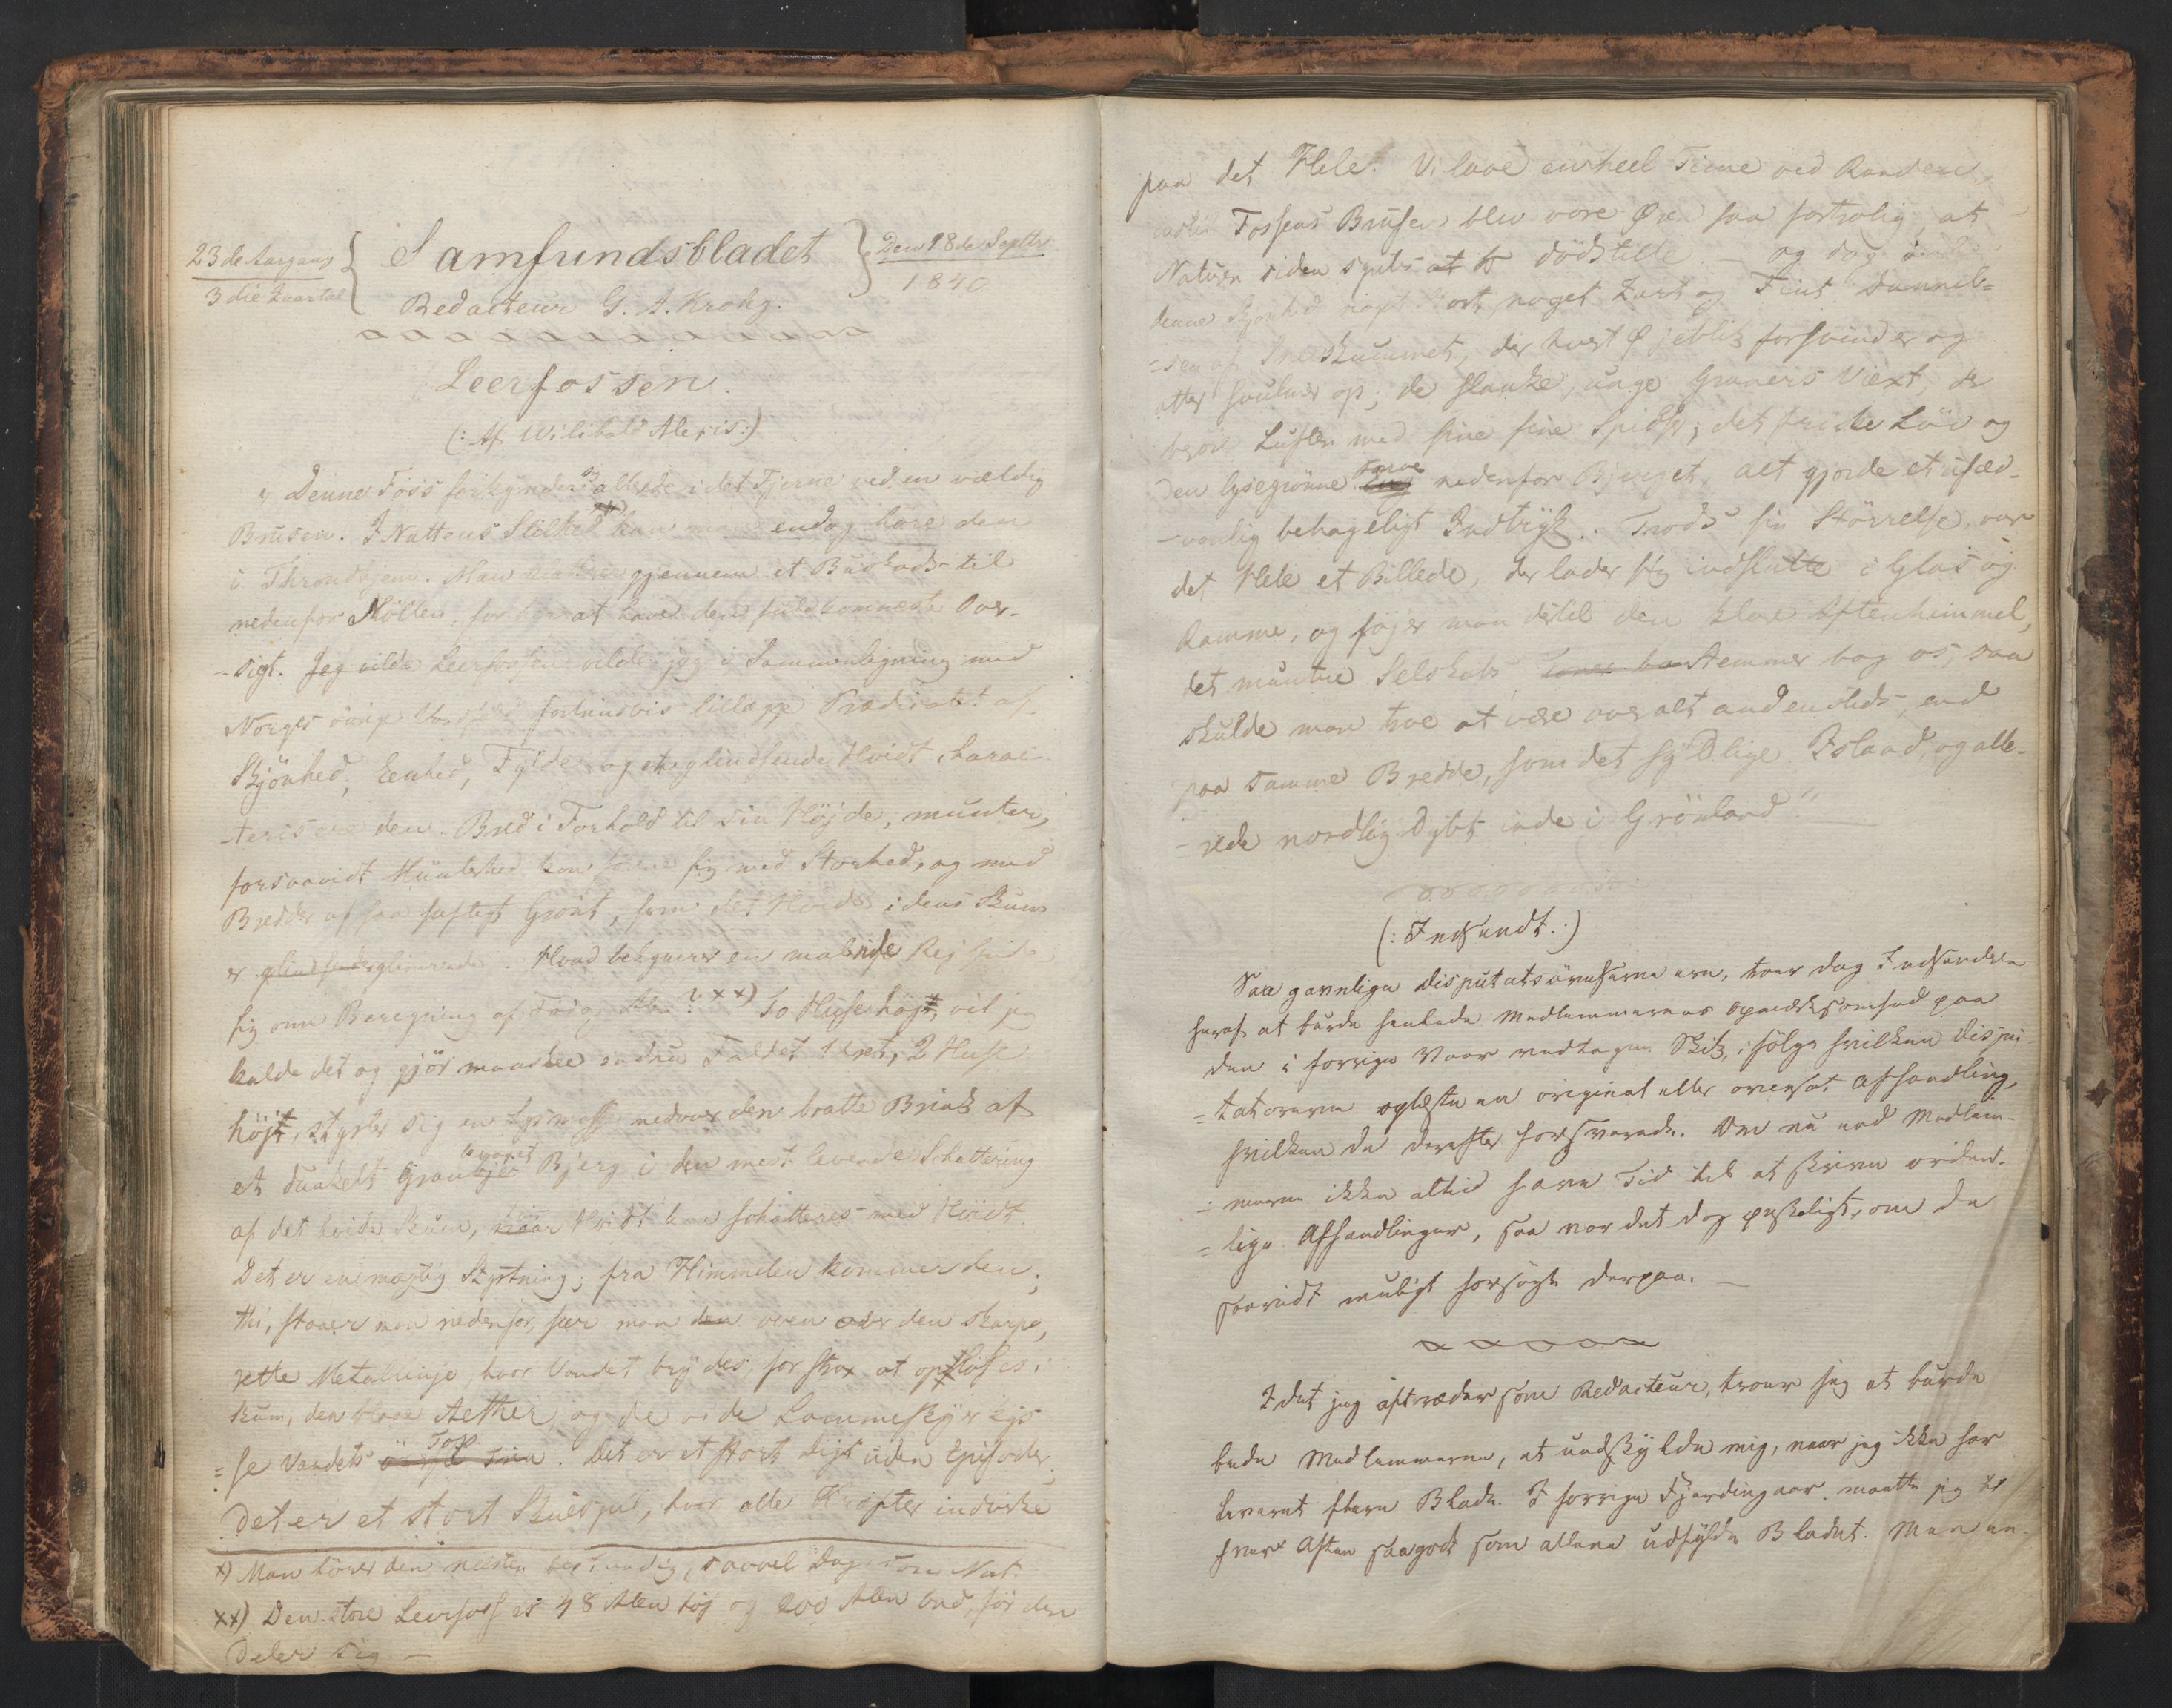 23de Aargang
3die Quartal
Samfundsbladet
Redacteur G. A. Krohg.
Den 18de Septbr
1840
Leerfossen.
(: Af Wilibald Alexis :)
"Denne Foss forkynder sig allerede i det Fjerne ved en vældig
Brusen. I Nattens Stilhed x) kan man endog høre den
i Throndhjem. Man gjennem et Buskads til
nedenfor Møllen, for her at have den fuldkomneste Over-
-sigt. Jeg vilde Leerfossen vilde jeg i Sammenligning med
Norges øvrige Vandfald fortrinsvis tillægge Prædicatet af
Skjönhed; Eenhed, Fylde, og et glindsende Hvidt charac-
-terisere den. Bred i Forhold til sin Höjde, munter,
forsaavidt Munterhed kan forene sig med Storhed, og med
Bredder af saa saftigt Grönt, som det Hvide i dens Skum
er glindsende glimrende. Hvad bekymrer en malende Rejsende
sig om Beregning af Fod og Alen? xx) To Huse højt, vil jeg
kalde det og gjör maaskee endnu Faldet Uret, 2 Huse
höjt, styrter sig en nedover den bratte Brink af
et dunkelt Granbevoxet Bjerg i den mest levende Schattering
af det hvide Skum, naar Hvidt kan schatteres med Hvidt.
Det er en mægtig Styrtning; fra Himmelen kommer den;
thi, staaer man nedenfor, seer man den oven over den skarpe,
rette Metallinje, hvor Vandet brydes, for strax at oplöses i
Skum, den blaae Aether og de hvide Lammeskyer kys
=se Vandets øverste Top. Det er et stort Digt uden Episoder;
Det er et stort Skuespil, hvor alle Kræfter indvirke
x) Man hörer den næsten bestandig, saavel Dag som Nat.
xx) Den store Leerfoss er 48 Alen höj og 200 Alen bred, för den
deler sig —
paa det Hele. Vi laae en heel Time ved Randen,
indtil Fossens Brusen blev vore Øren saa fortrolig, at
Naturen siden syntes at os dödstille. — og dog
denne Skjönhed noget Stort, noget Zart og Fint. Dannel=
=sen af Sneeskummet, der hvert Øjeblik forsvinder og
atter svulmer op; de slanke, unge Graners Væxt, der
bryde Luften med sine fine Spidser; det friske Löv og
den lysegrönne Eng nedenfor Bjerget, alt gjorde et usæd-
-vanlig behageligt Indtryk. Trods sin Störrelse, var
det Hele et Billede, der lader sig indslutte i Glas og
Ramme, og föjer man dertil den klare Aftenhimmel,
det muntre Selskabs Stemmer bag os, saa
skulde man troe at være overalt andensteds, end
paa samme Bredde, som det sydlige Island, og alle-
-rede nordlig Dybt inde i Grönland"
(: Indsendt. :)
Saa gavnlige Disputatsövelserne ere, troer dog Indsenderen
heraf at burde henlede Medlemmernes Opmærksomhed paa
den i forrige Vaar vedtagne Skik, ifölge hvilken Dispu-
=tatorerne oplæste en original eller oversat Afhandling,
hvilken de derefter forsvarede. Om nu end Medlem-
=merne ikke altid have Tid til at skrive ordent-
=lige Afhandlinger, saa var det dog önskeligt, om de
saavidt muligt forsögte derpaa. —
Idet jeg aftræder som Redacteur, troer jeg at burde
bede Medlemmerne, at undskylde mig, naar jeg ikke har
leveret flere Blade. I forrige Fjerdingaar maatte jeg
hver Aften saagodt som allene udfylde Bladet. Man en-